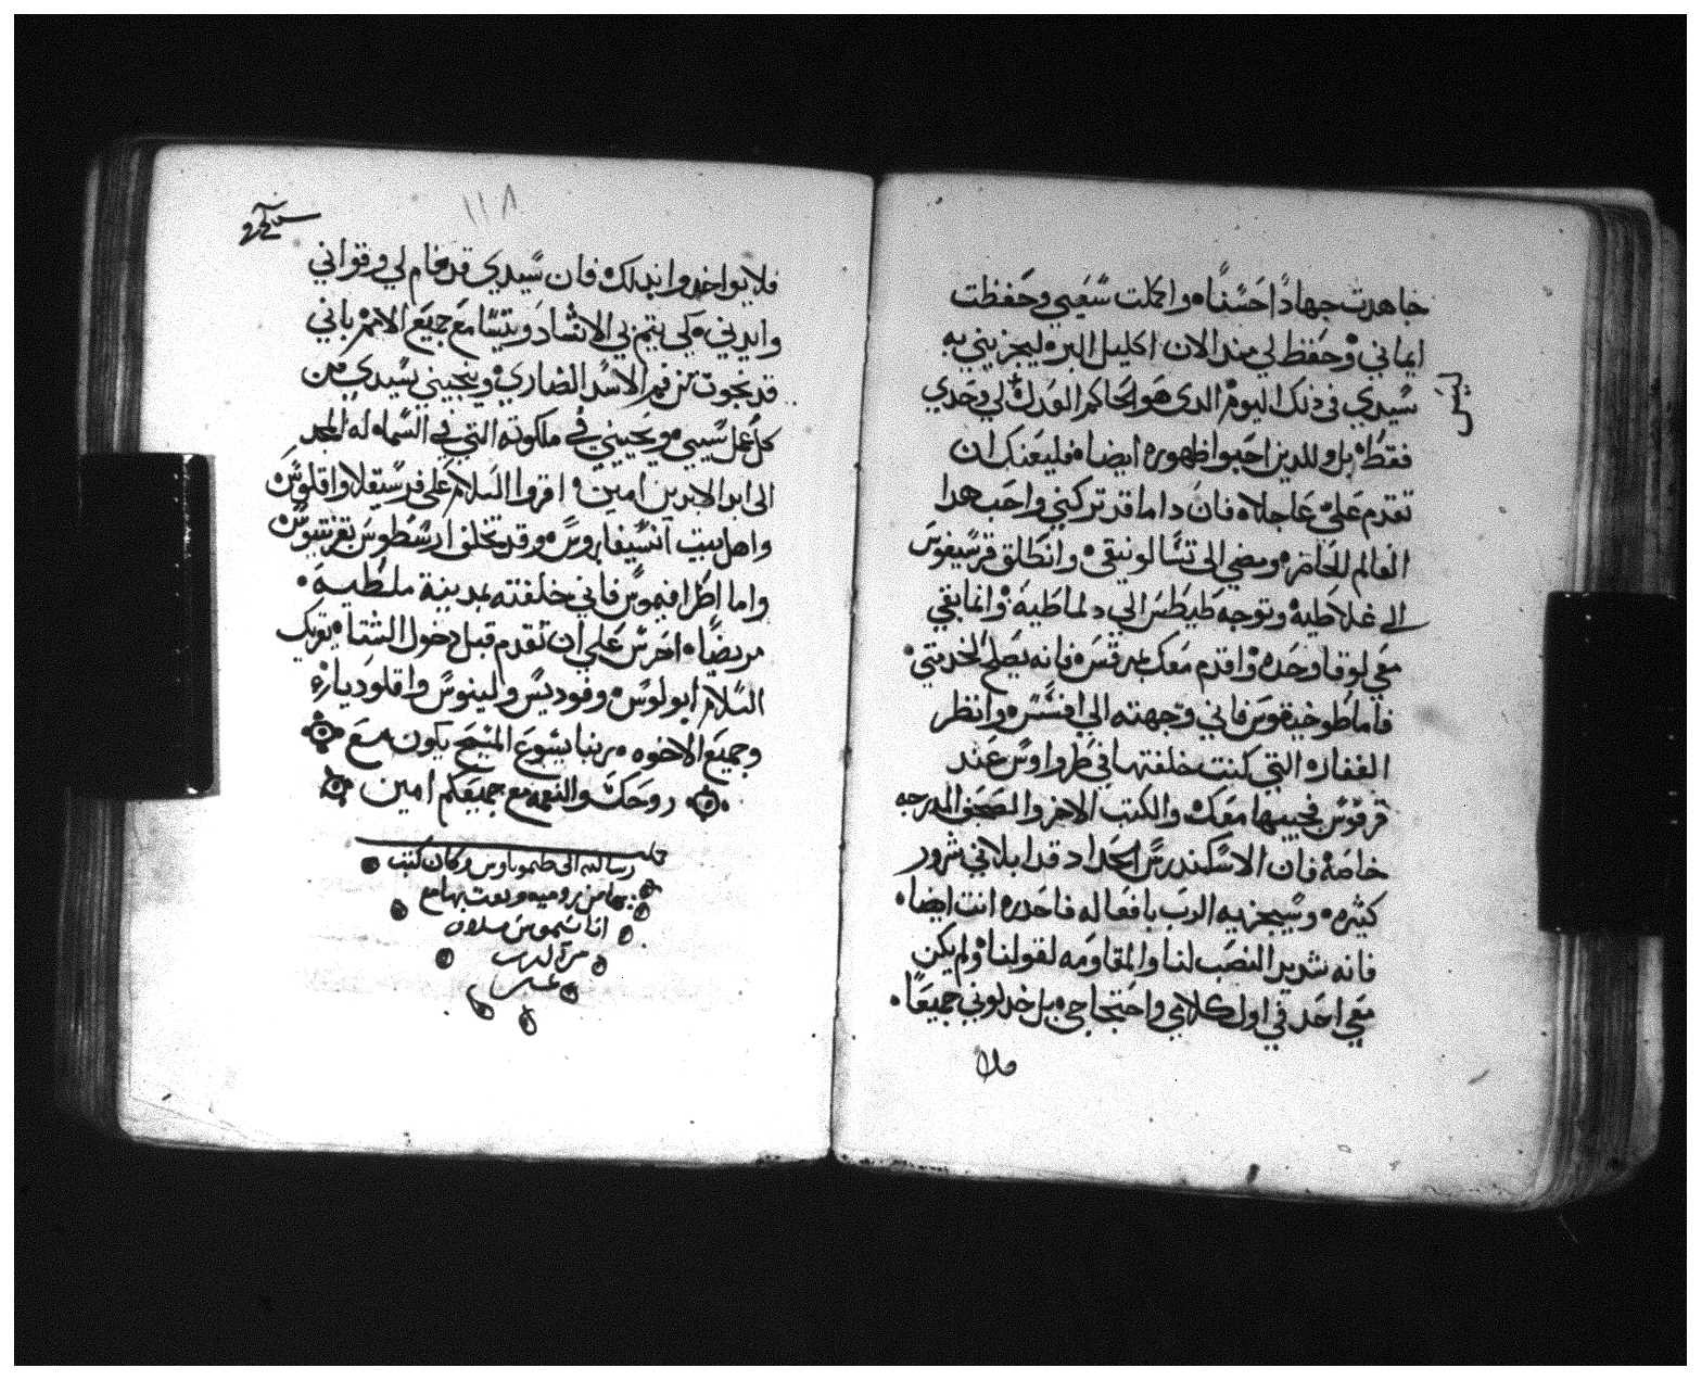 جاهدت جهادًا حَسَنًاه واكملت سَعيي وحَفظت
ايماني وحفظ لي منذ الان اكليل البره ليجزيني به
سَيدي في ذلك اليوم الدى هَو الحَاكم العَدل ليسَ لي وحَدي
فقطه بل وللدين احَبوا ظهوره ايضاه فليعَنك ان
تقدم عَلىَ عَاجلاه فان داما قد تركني واحَب هدا
العَالم للحَاضره ومضي الى تسَالونيقىه وانطلق قرسَيفوسَ
الي غلاطيهه وتوجه طيطسَ الي دلماطيهه وانما بقي
مَعي لوقا وحَدهه واقدم مَعَك بمرقسَه فانه يصَلح لخدمتي
فاما طوخيقوسَ فاني وجهته الي افسَسَه وانظر
الغفاره التي كنت خلفتها في طرواوسَ عَند
قرفوسَ فجيبها مَعَك والكتب الاخر والصَحف المدرجه
خاصَة فان الاسَكندرسَ الحَداد قد ابلاني شرور
كثيره وسَيجزيه الرَب بافعَاله فاحَدره انت ايضاه
فانه شديد النصَب لنا والمقاومَه لقولناه ولم يكن
مَعي احَد في اول كلامي واحَتجاجيه بل خدلوني جميعًا
فلا
١١٨
فلا يواخدوا بدلكه فان سَيدي قد قام لي وقواني
وايدنيه كي يتم بي الانشاد ويتسَامَع جميَع الامم باني
قد نجوت من فم الاسَد الضاري وينجيني سَيدي من
كل عَمل سَيي ويحَييني في ملكوته التي في السَماه له المجد
الى ابد الابدين امين اقروا السَلام عَلى فرسَيقلا واقلوسَ
واهل بيت انسَيفاروسَ وقد تخلف ارسَطوسَ بقرنتيوسَ
واما اطرافيموسَ فاني خلفته بمدينة ملطيهَ
مريضًاه احَرسَ عَلي ان تقدم قبل دخول الشتاه يقريك
السَلام ابولوسَ وفوديسَ ولينوسَ واقلوديا
وجميَع الاخوه ربنا يسَوعَ المسَيح يكون مَع
روحَك والنعمه مع جميعَكم امين
رسالته الى طيموتاوس وكان كتب
بها من روميه وبعت بها مع
اناسَموسَ